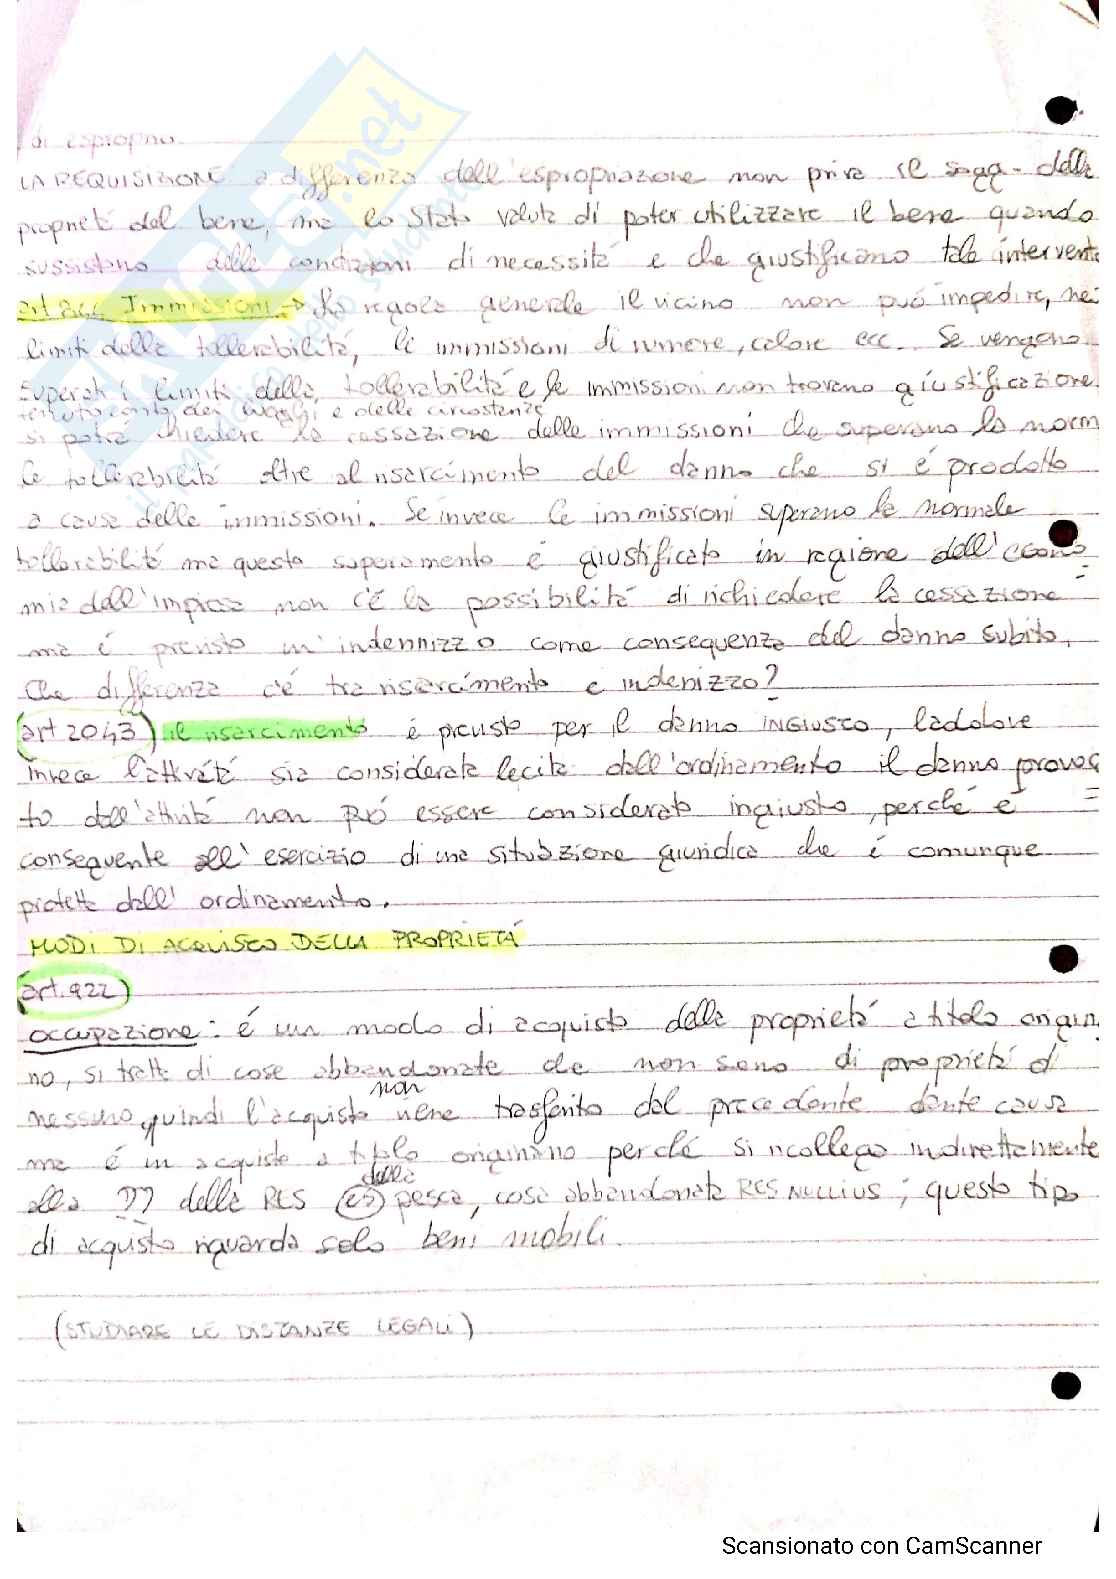 di esproprio.
LA REQUISIZIONE a differenza dell'espropriazione non priva il sogg. della
proprietá del bene, ma lo Stato valuta di poter utilizzare il bene quando
sussistono delle condizioni di necessitá e che giustificano tale intervento
art 844 Immissioni → La regola generale il vicino non puó impedire, nei
limiti della tollerabilitá, le immissioni di rumore, calore ecc. Se vengono
superati i limiti della tollerabilitá e le immissioni non trovano giustificazione,
tenuto conto dei luoghi e delle circostanze
si potrá chiedere la cessazione delle immissioni che superano la norma
le tollerabilitá oltre al risarcimento del danno che si é prodotto
a causa delle immissioni. Se invece le immissioni superano la normale
tollerabilitá ma questo superamento é giustificato in ragione dell'econo
mia dell'impresa non c'é la possibilitá di richiedere la cessazione
ma é previsto un'indennizzo come conseguenza del danno subito.
Che differenza c'é tra risarcimento e indenizzo?
(art 2043) il risarcimento é previsto per il danno INGIUSTO, laddove
invece l'attivitá sia considerata lecita dall'ordinamento il danno provoca
to dall'attivitá non puó essere considerato ingiusto, perché é
conseguente all'esercizio di una situazione giuridica che é comunque
protetta dall'ordinamento.
MODI DI ACQUISTO DELLA PROPRIETÁ
art.922)
occupazione: é un modo di acquisto della proprietá a titolo origin
rio, si tratta di cose abbandonate che non sono di proprietá di
non
nessuno, quindi l'acquisto viene trasferito dal precedente dante causa
ma é un acquisto a titolo originario perché si ricollega indirettamente
della
alla ?? della RES (es) pesca, cosa abbandonata RES NULLIUS; questo tipo
di acquisto riguarda solo beni mobili.
(STUDIARE LE DISTANZE LEGALI)
.net
Scansionato con CamScanner